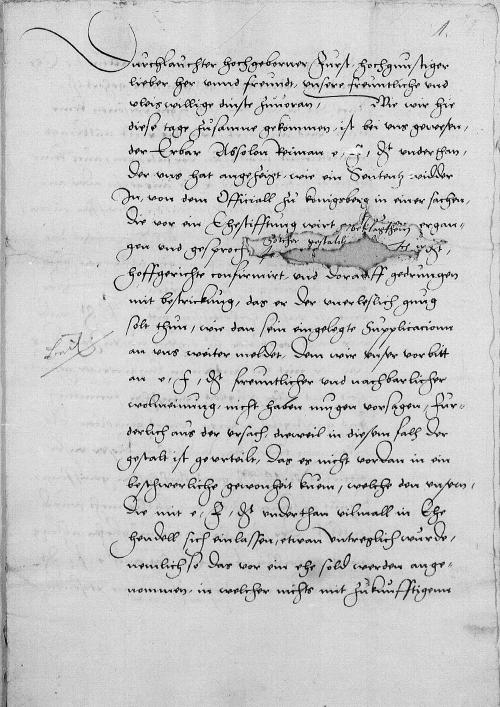 1.
Durchlauchter hochgeborner Furst, hochgunstiger
lieber her unnd freundt, unsere freuntliche und
vleis willige dinste zuvoran, Wie wir hie
diese tage zusamne gekommen, ist bei uns gewesen,
der Erbar Absolon Reiman e, f, underthan,
der uns hat angezeigt, wie ein Sententz widder
In, von dem Officiall zu Konigsberg in einer sachen,
die vor ein Ehestifftung wirt ergan-
gen und gesproch
hoffgerichte confirmirt, und doraoff gedrungen
mit bestrickung, das er der unerleslich gnug
solt thun, wie dan sein eingelegte Supplicacionn
an uns weiter meldet, Dem wir unser vorbitt
an e, f, freuntlicher und nachbarlicher
wolmeinung, nicht haben mugen vorsagen, fur-
derlich aus der ursach, dieweil in diesem fall der
gestalt ist geurteilt, das es nicht vordan in ein
beschwerliche gewonheit kuem, welche den unsern,
die mit e, f, underthan vilmall in Ehe
hendell sich einlassen, etwan untreglich wurde,
nemlich so das vor ein ehe sold werden ange-
nommen, in welcher nichts mit zukunfftigenn